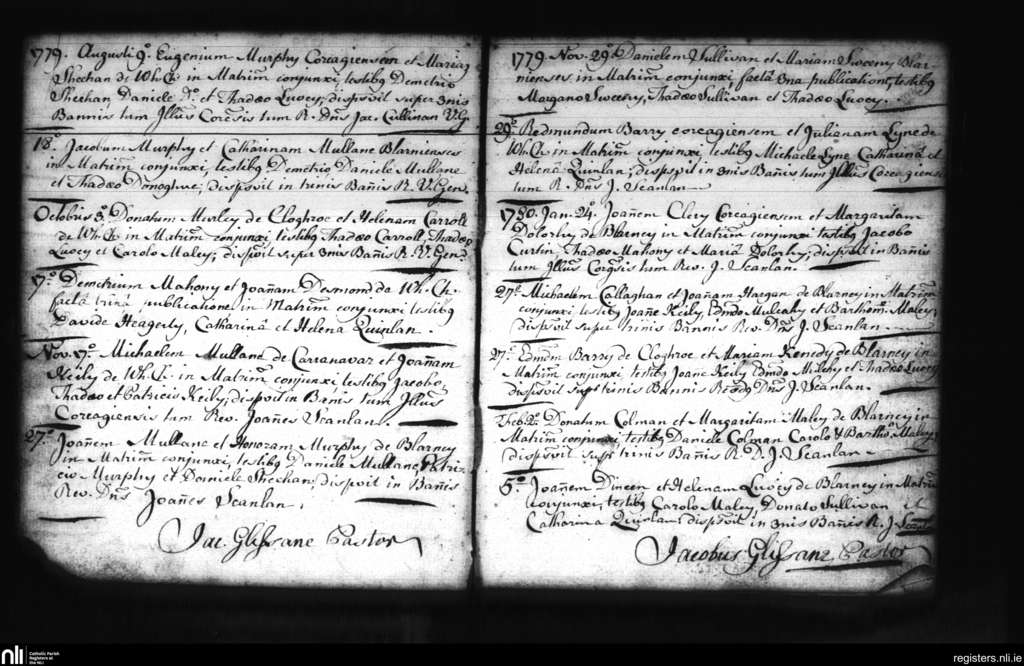 1779. Augusti 9º. Eugenium Murphy Corcagiensem et Mariam
Sheehan de Wh. Ch. in Matrim̃ conjunxi, testibq Demetrio
Sheehan, Daniele Dº. et Thadæo Lucey, dispsvit super 3nis
Bannis tum Illũs Corcsis tum R. Dñs Jac. Cullinan V.G.
18º. Jacobum Murphy et Catharinam Mullane Blarnienses
in Matrim̃ conjunxi, testibq Demetrio, Daniele Mullane
et Thadæo Donoghue; dispsvit in trinis Bañis R. V. Gen.
Octobris 3º. Donatum Murley de Cloghroe et Helenam Carroll
de Wh. Ch. in Matrim̃ conjunxi, testibq Thadæo Carroll, Thadæo
Lucey et Carolo Maley; dispsvit super 3nis Bañis R. V. Gen.
17º. Demetrium Mahony et Joañam Desmond de Wh. Ch.
factâ trinâ publicatione in Matrim̃ conjunxi testibq
Davide Heagerty, Catharinâ et Helenâ Quinlan.
Nov. 17º. Michaelem Mullane de Carranavar et Joañam
Keily de Wh. Ch. in Matrim̃ conjunxi testibq Jacobo,
Thadæo et Patricis Keily; dispsvit in Banis tum Illũs
Corcagiensis tum Rev. Joañes Scanlan.
27º. Joañem Mullane et Honoram Murphy de Blarney
in Matrim̃ conjunxi, testibq Daniele Mullane, Patri-
cio Murphy et Daniele Sheehan; dispsvit in Bañis
Rev. Dñs Joañes Scanlan.
Jac. Glissane Pastor
1779 Nov. 29º. Danielem Sullivan et Mariam Sweeny Blar-
nienses in Matrim̃ conjunxi, factâ 3na publication͠e, testibq
Morgano Sweeny, Thadæo Sullivan et Thadæo Lucey.
29º. Redmundum Barry corcagiensem et Julianam Lyne de
Wh. Ch. in Matrim̃ conjunxi testibq Michaele Lyne Catharinâ et
Helenâ Quinlan; dispsvit in 3nis Bañis tum Illũs Corcagiens
tum R. Dñs J. Scanlan
1780. Jan. 24º. Joañem Clery Corcagiensem et Margaritam
Dolorhy de Blarney in Matrim̃ conjunxi testibq Jacobo
Curtin, Thadæo Mahony et Mariâ Dolorhy; dispsvit in Bañis
tum Illũs Corcgsis tum Rev. J. Scanlan.
27º. Michaelem Callaghan et Joañam Haegan de Blarney in Matrim̃
conjunxi testibq Joañe Keily, Edm̃do Mulcahy et Barthom̃. Maley;
dispsvit super trinis Bannis Rev. Dñs J. Scanlan.
27º. Edm̃dm Barry de Cloghroe et Mariam Kenedy de Blarney in
Matrim̃ conjunxi, testibq Joane Keily Edm̃do Milehy et Thadæo Lucey
dispsvit supr trinis Bannis Revdq Dñs J. Scanlan.
Feb. 2º. Donatum Colman et Margaritam Maley de Blarney in
Matrim̃ conjunxi, testibq Daniele Colman Carolo & Bartho. Maley,
dispsvit supr trinis Bañis R. D. J. Scanlan
5º. Joañem Dineen et Helenam Lucey de Blarney in Matrim̃
conjunxi, testibq Carolo Maley, Donato Sullivan et
Catharina Quinlan; dispsvit in 3nis Bañis R. J. Scanlan
Jacobus Glissane Pastor
nli
Catholic Parish
Registers at
the NLI
registers.nli.ie